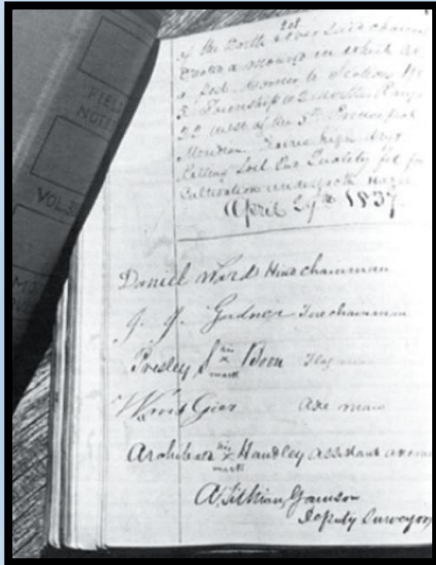 FIELD
NOTES
VOL.
208
of the North & West Said chainmen
a mound in which
a Post Corner to Sections
3. Township 62 North Range
22 West of the 5th Principal
Meridian Prairie high dry
Rolling Soil 2nd Quality fit for
Cultivation undergrowth Hazel
April 29th 1837
Daniel Ward Hind chainman
J. J. Gudner Fore chainman
Presley his x mark Boon Flag man
Gier Axe man
his x mark Handley assistant axeman
Deputy Surveyor